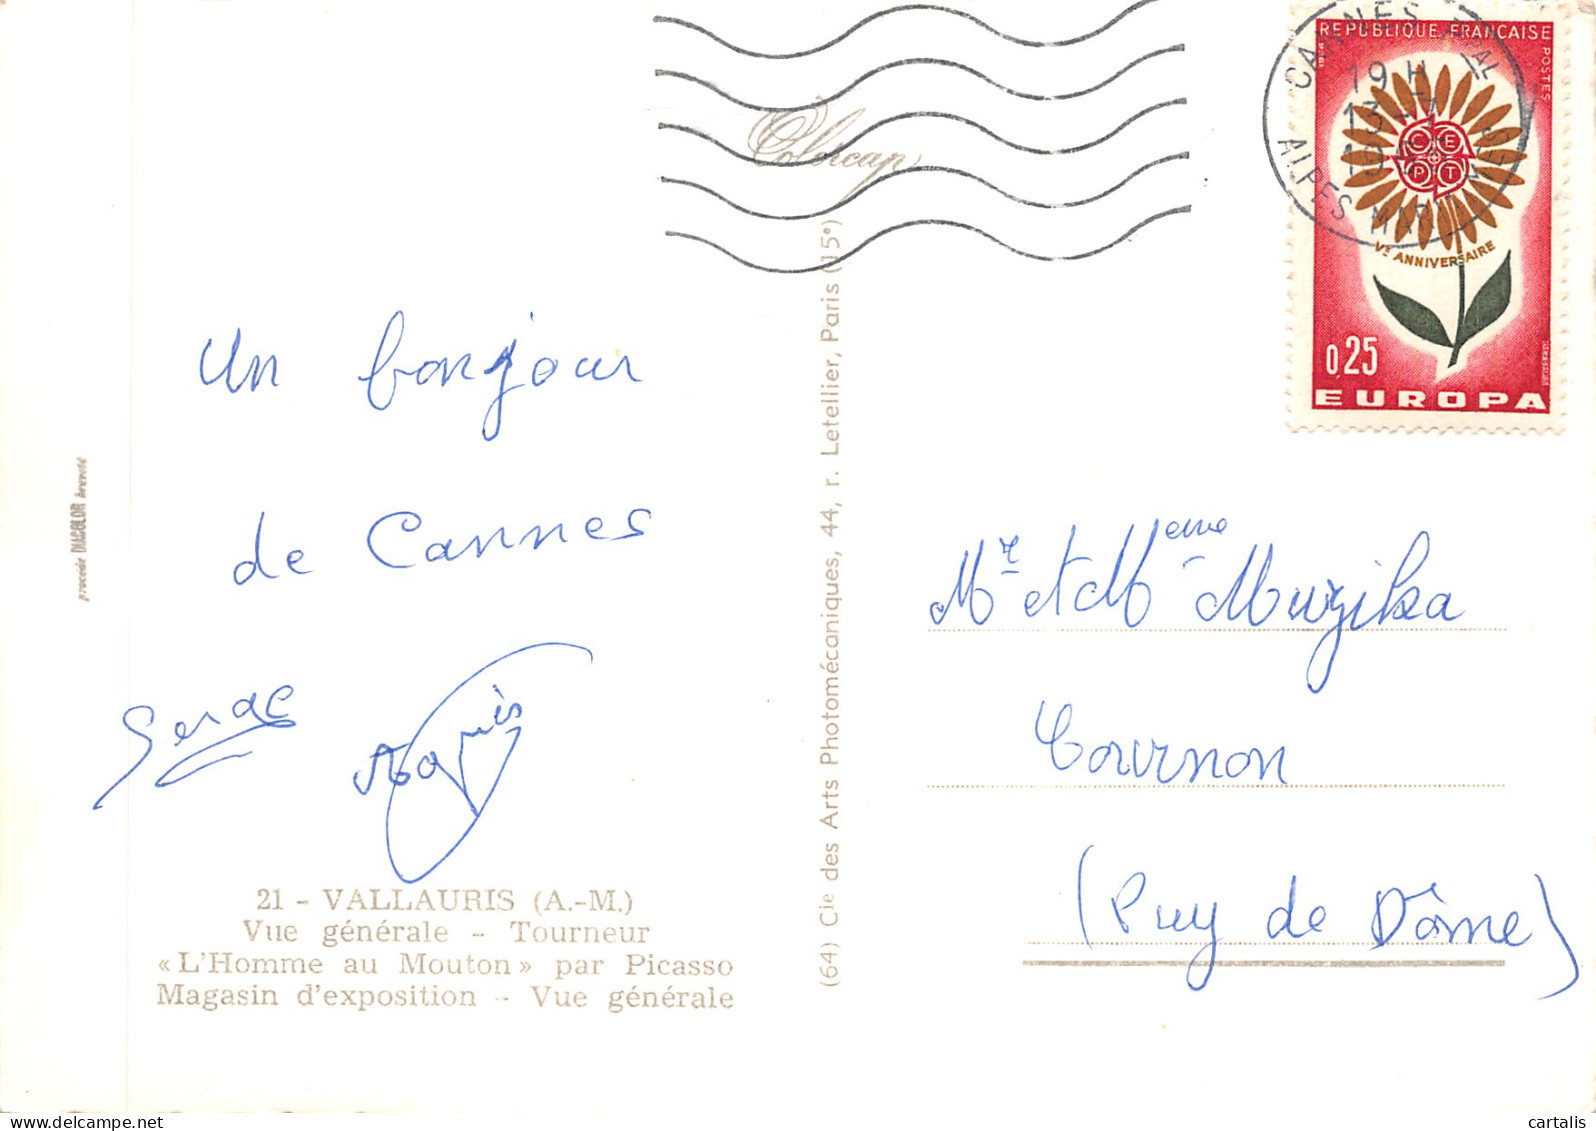 Colorcap
CANNES
ALPES MAR
19 H
13
19
REPUBLIQUE FRANCAISE
POSTES
CEPT
Ve ANNIVERSAIRE
0,25
EUROPA
Un bonjour
de Cannes
Serge
procédé DIACOLOR breveté
21 - VALLAURIS (A.-M.)
Vue générale - Tourneur
« L'Homme au Mouton » par Picasso
Magasin d'exposition - Vue générale
(64) Cie des Arts Photomécaniques, 44, r. Letellier, Paris (15e)
Mr et Mme Muzika
Cournon
(Puy de Dôme)
cartalis